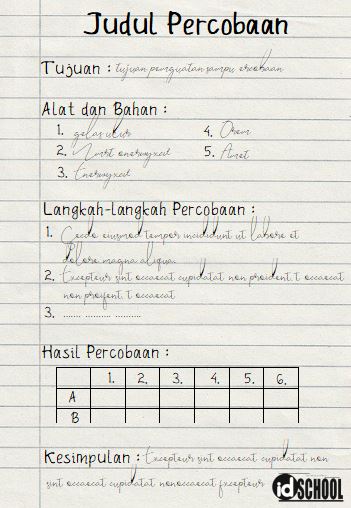 Judul Percobaan
Tujuan : tujuan
Alat dan Bahan :
1. gelas ukur
4.
2.
5. Amet
3.
Langkah-langkah Percobaan :
1. eiusmod tempor incididunt ut labore et
dollore magna aliqua.
2. Excepteur sint occaecat cupidatat non proident, t occaecat
non proident, t occaecat
3. ....... .......... ..........
Hasil Percobaan :
1. 2. 3. 4. 5. 6.
A
B
Kesimpulan : Excepteur sint occaecat cupidatat non
sint occaecat cupidatat nonoccaecat
idSCHOOL